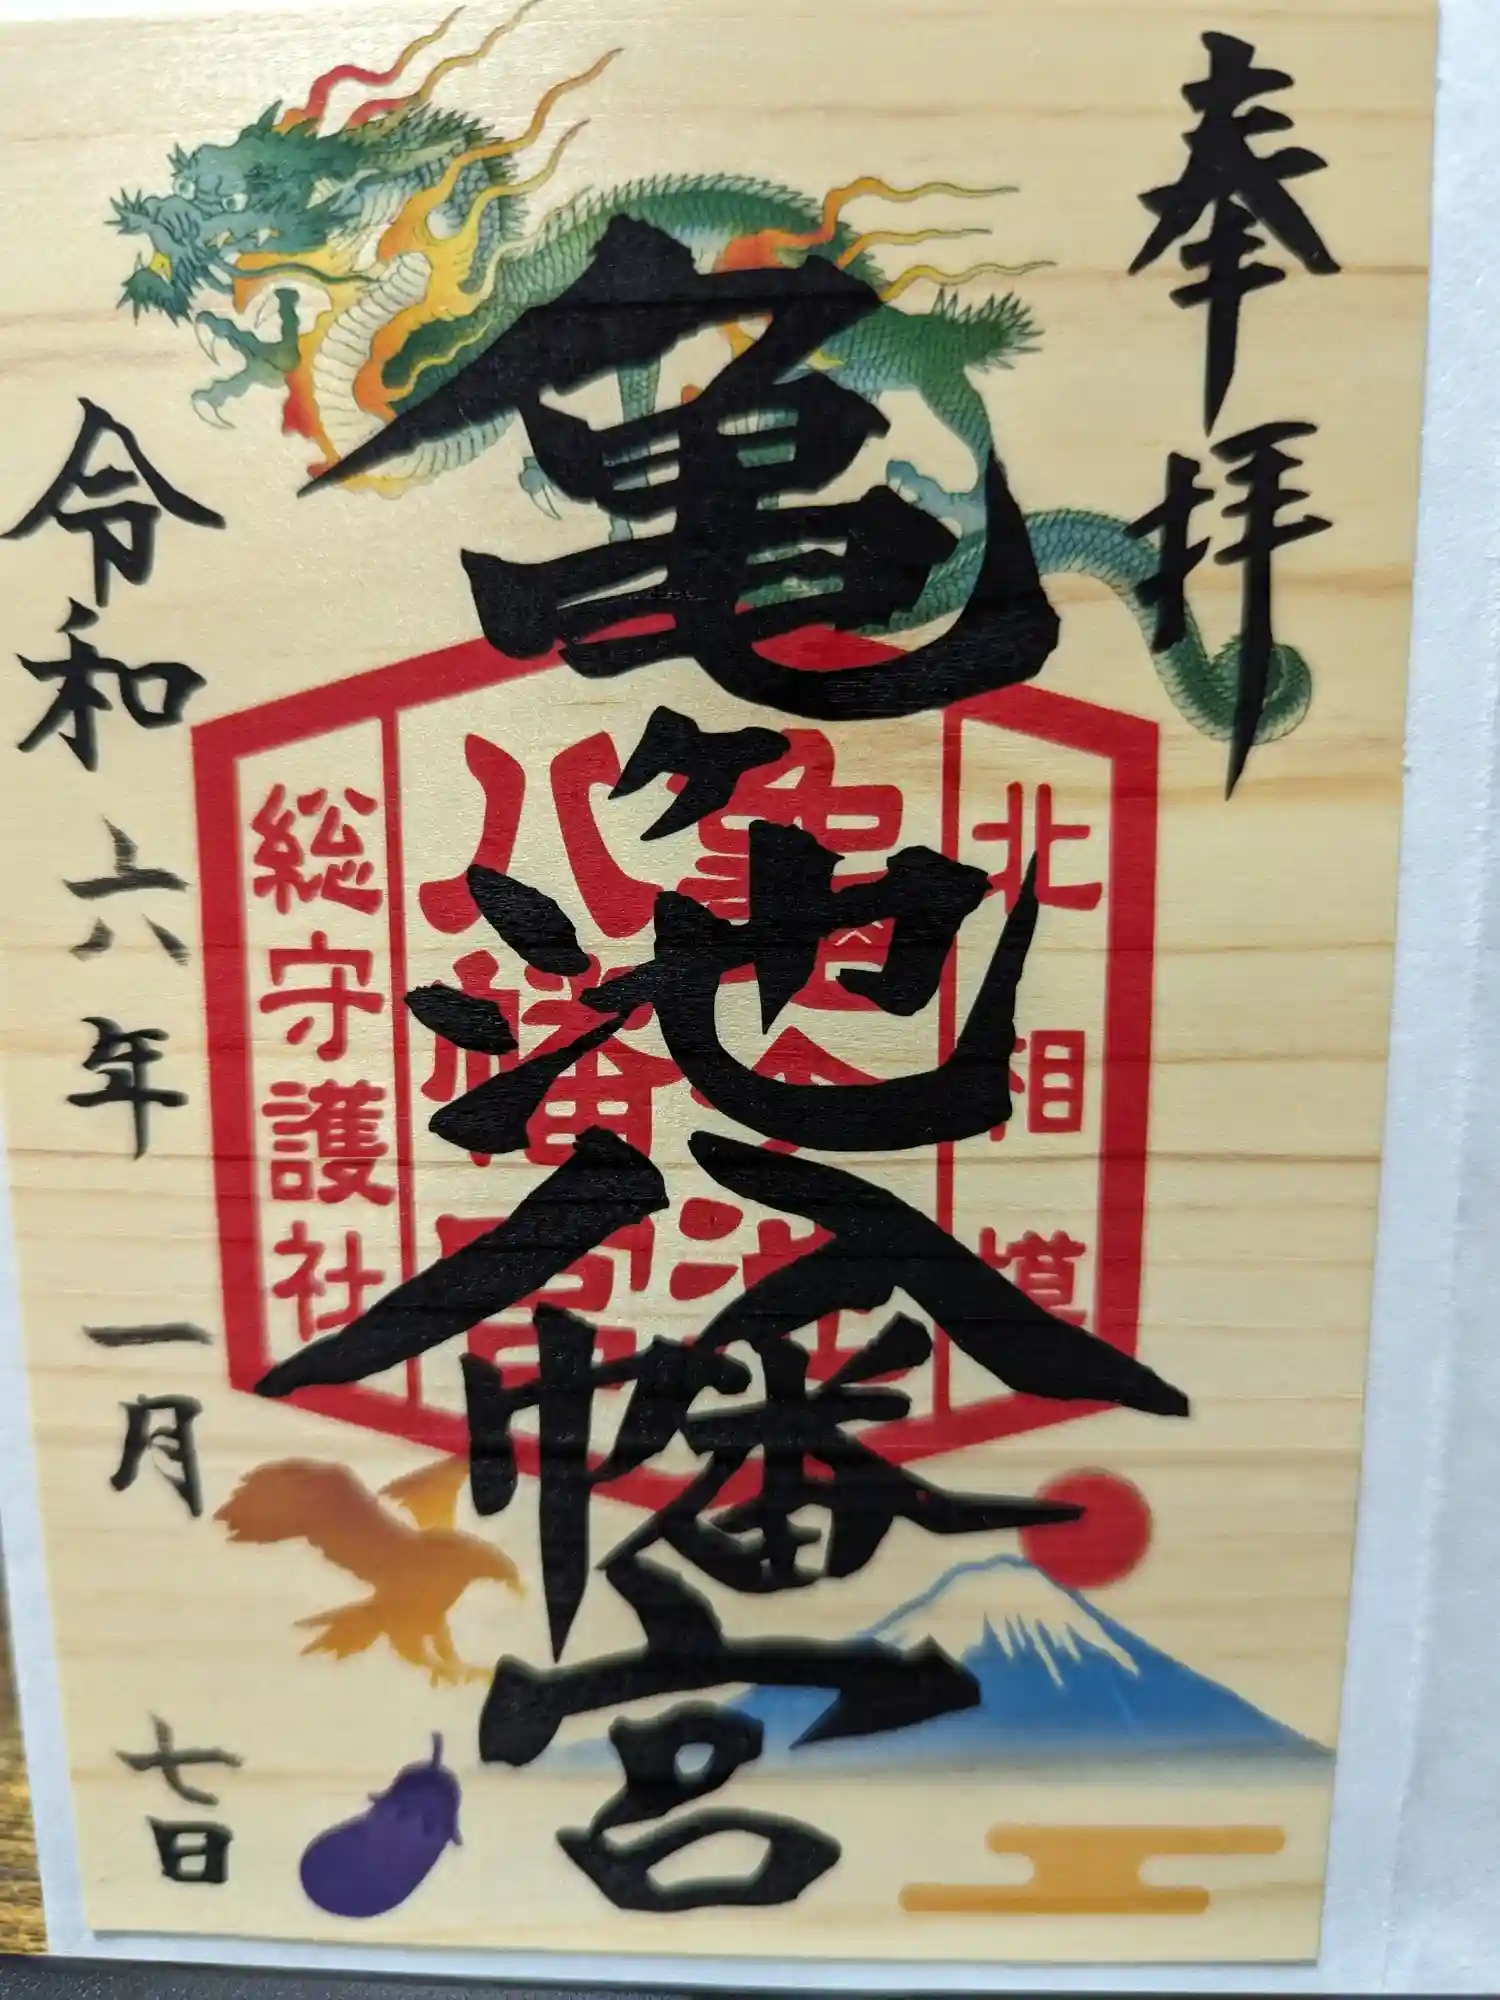 奉拝
北相模
亀ヶ池
八幡宮
総守護社
亀ヶ池八幡宮
令和六年一月七日